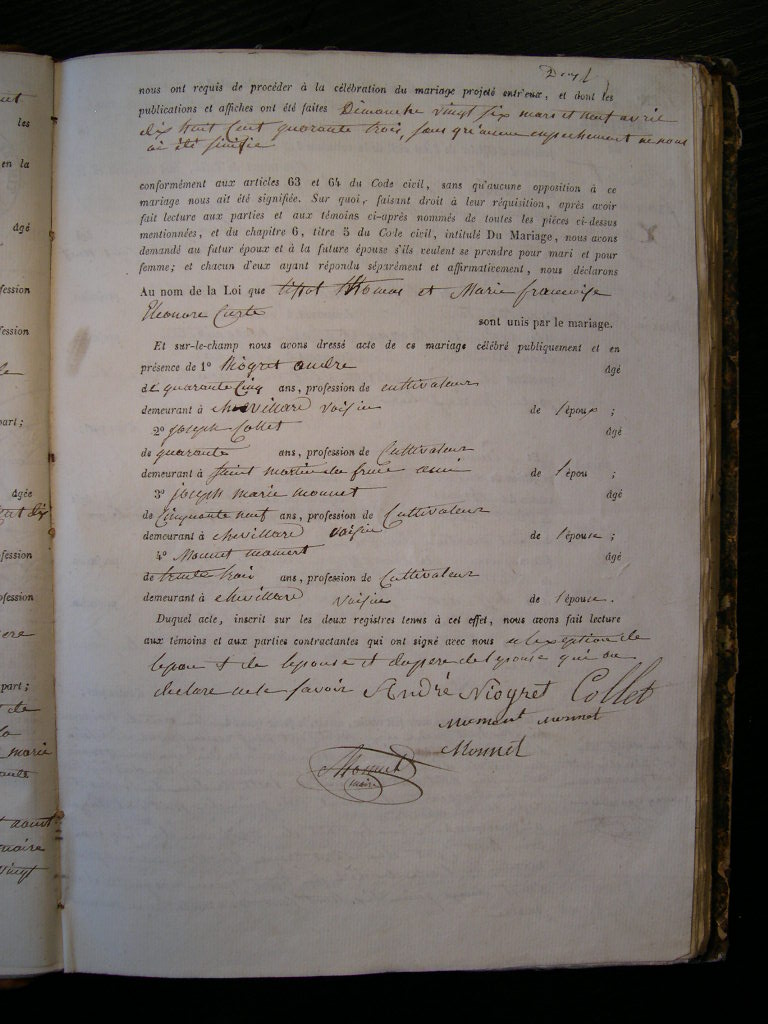 nous ont requis de procéder à la célébration du mariage projeté entr'eux, et dont les
publications et affiches ont été faites Dimanche vingt six mars et neuf avril
dix huit cent quarante trois, sans qu'aucun empechement ne nous
ai été sinifie
conformément aux articles 63 et 64 du Code civil, sans qu'aucune opposition à ce
mariage nous ait été signifiée. Sur quoi, faisant droit à leur réquisition, après avoir
fait lecture aux parties et aux témoins ci-après nommés de toutes les pièces ci-dessus
mentionnées, et du chapitre 6, titre 5 du Code civil, intitulé Du Mariage, nous avons
demandé au futur époux et à la future épouse s'ils veulent se prendre pour mari et pour
femme; et chacun d'eux ayant répondu séparément et affirmativement, nous déclarons
Au nom de la Loi que tissot thomas et Marie françoise
Eleonore
sont unis par le mariage.
Et sur-le-champ nous avons dressé acte de ce mariage célébré publiquement et en
présence de 1º Niogret andre âgé
de quarante cinq ans, profession de cultivateur
demeurant à chevillard voisin de l'époux ;
2º joseph Collet âgé
de quarante ans, profession de Cultivateur
demeurant à saint martin du frene ami de l'épou ;
3º joseph marie monnet âgé
de cinquante neuf ans, profession de Cultivateur
demeurant à chevillard voisin de l'épouse ;
4º Monnet mamert âgé
de trente trois ans, profession de Cultivateur
demeurant à chevillard voisin de l'épouse.
Duquel acte, inscrit sur les deux registres tenus à cet effet, nous avons fait lecture
aux témoins et aux parties contractantes qui ont signé avec nous a lexeption de
lepou et de lepouse et du pere de lepouse qui on
declare ne le savoir André Niogret Collet
mament monnet
Monnet
Monnet
maire